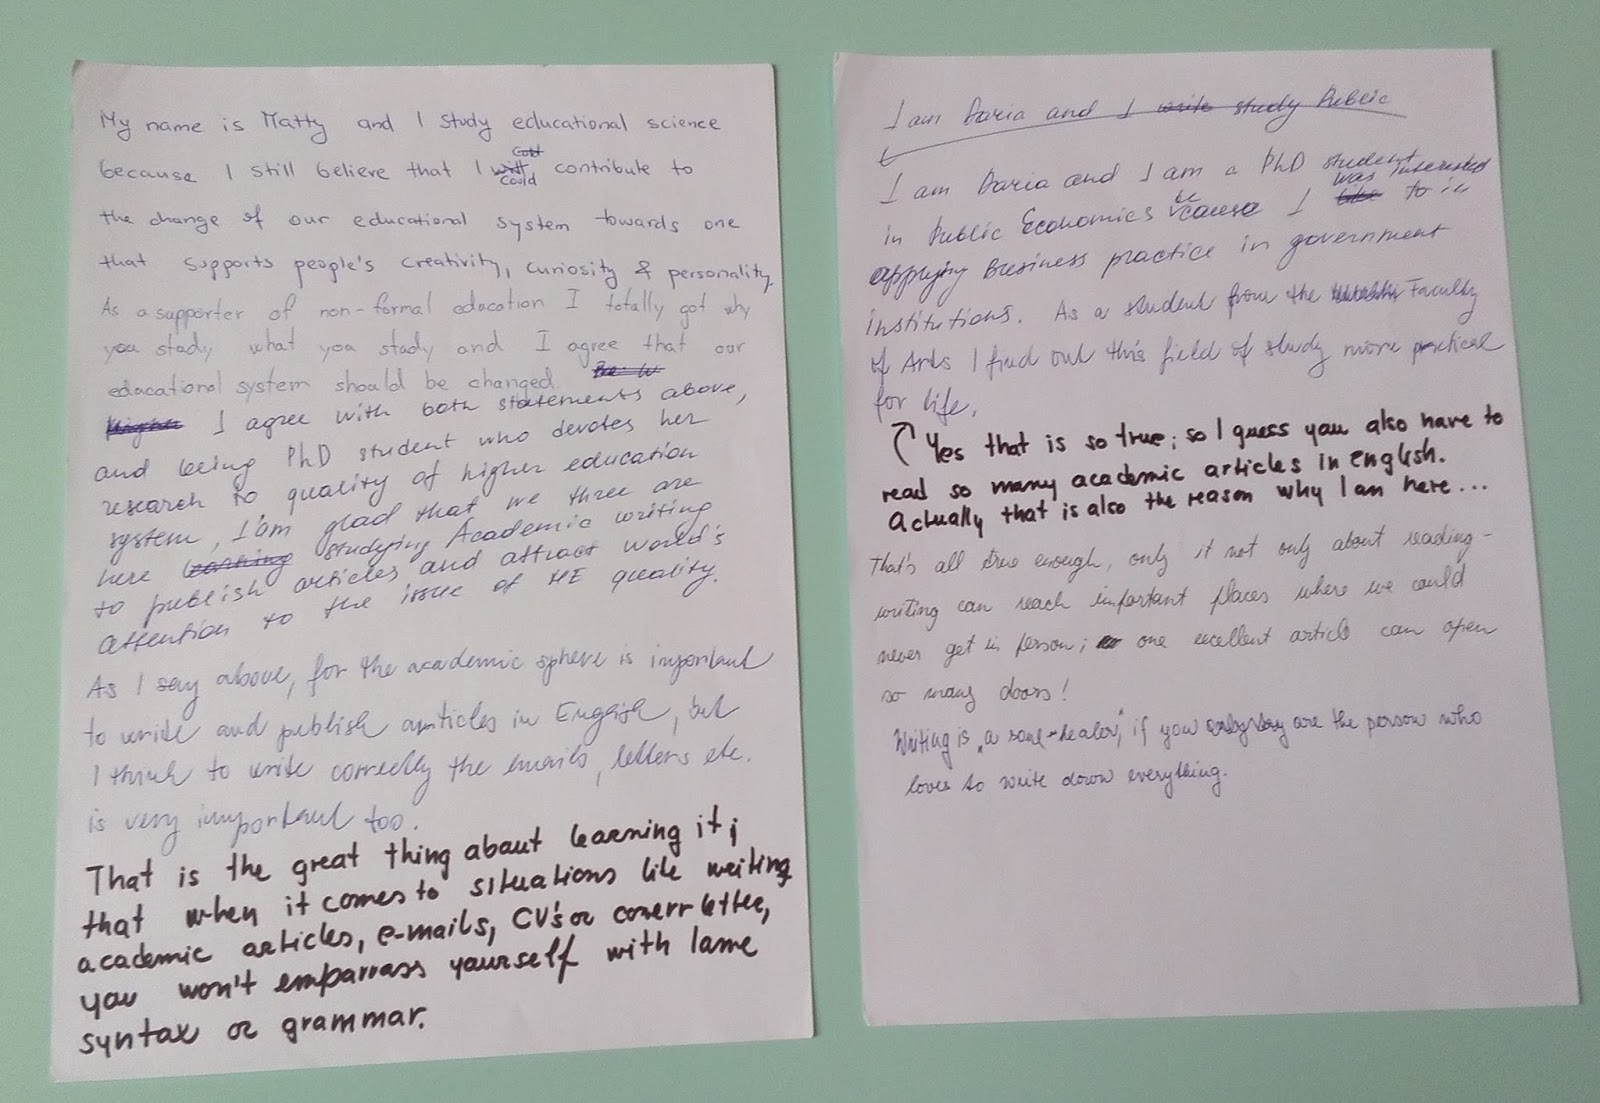 My name is Matty and I study educational science
because I still believe that I could contribute to
the change of our educational system towards one
that supports people's creativity, curiosity & personality.
As a supporter of non-formal education I totally got why
you study what you study and I agree that our
educational system should be changed.
I agree with both statements above,
and being PhD student who devotes her
research to quality of higher education
system, I'am glad that we three are
here learning studying Academic writing
to publish articles and attract world's
attention to the issue of HE quality.
As I say above, for the academic sphere is important
to write and publish articles in English, but
I think to write correctly the emails, letters etc.
is very important too.
That is the great thing about learning it;
that when it comes to situations like writing
academic articles, e-mails, CV's or coverr lettee,
you won't embarrass yourself with lame
syntax or grammar.
I am Daria and I write study Public
I am Daria and I am a PhD student
in Public Economics because I was interested in
applying Business practice in government
institutions. As a student from the Faculty
of Arts I find out this field of study more practical
for life.
Yes that is so true; so I guess you also have to
read so many academic articles in english.
Actually that is also the reason why I am here...
That's all true enough, only it not only about reading -
writing can reach important places where we could
never get in person; one excellent article can open
so many doors!
Writing is "a soul-healer", if you are the person who
loves to write down everything.